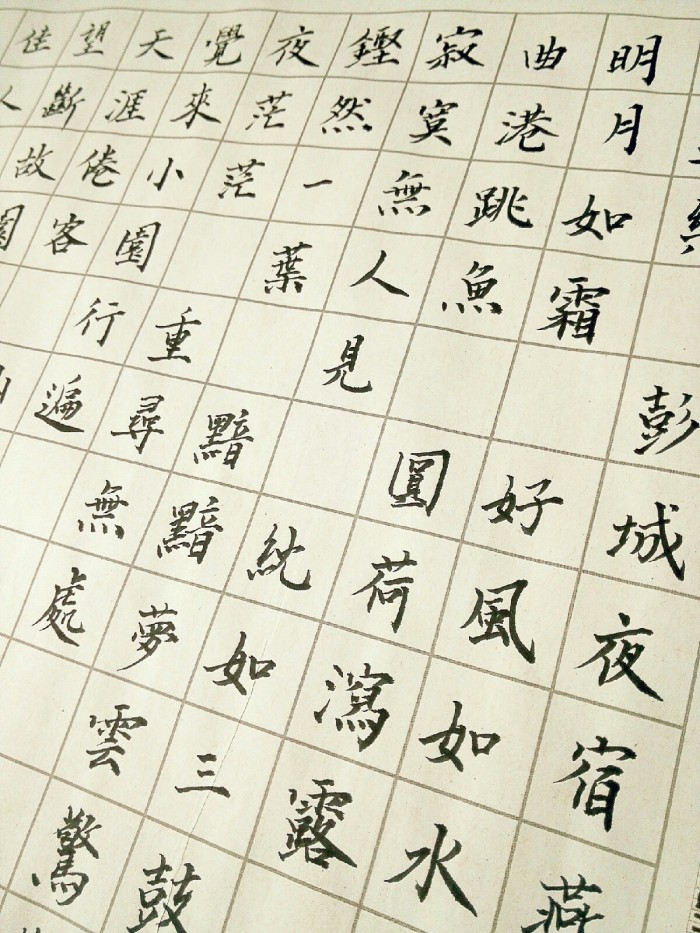 彭城夜宿燕
明月如霜 好風如水
曲港跳魚 圓荷瀉露
寂寞無人見 紞如三鼓
鏗然一葉 黯黯夢雲驚
夜茫茫 重尋無處
覺來小園行遍
天涯倦客
望斷故園
佳人